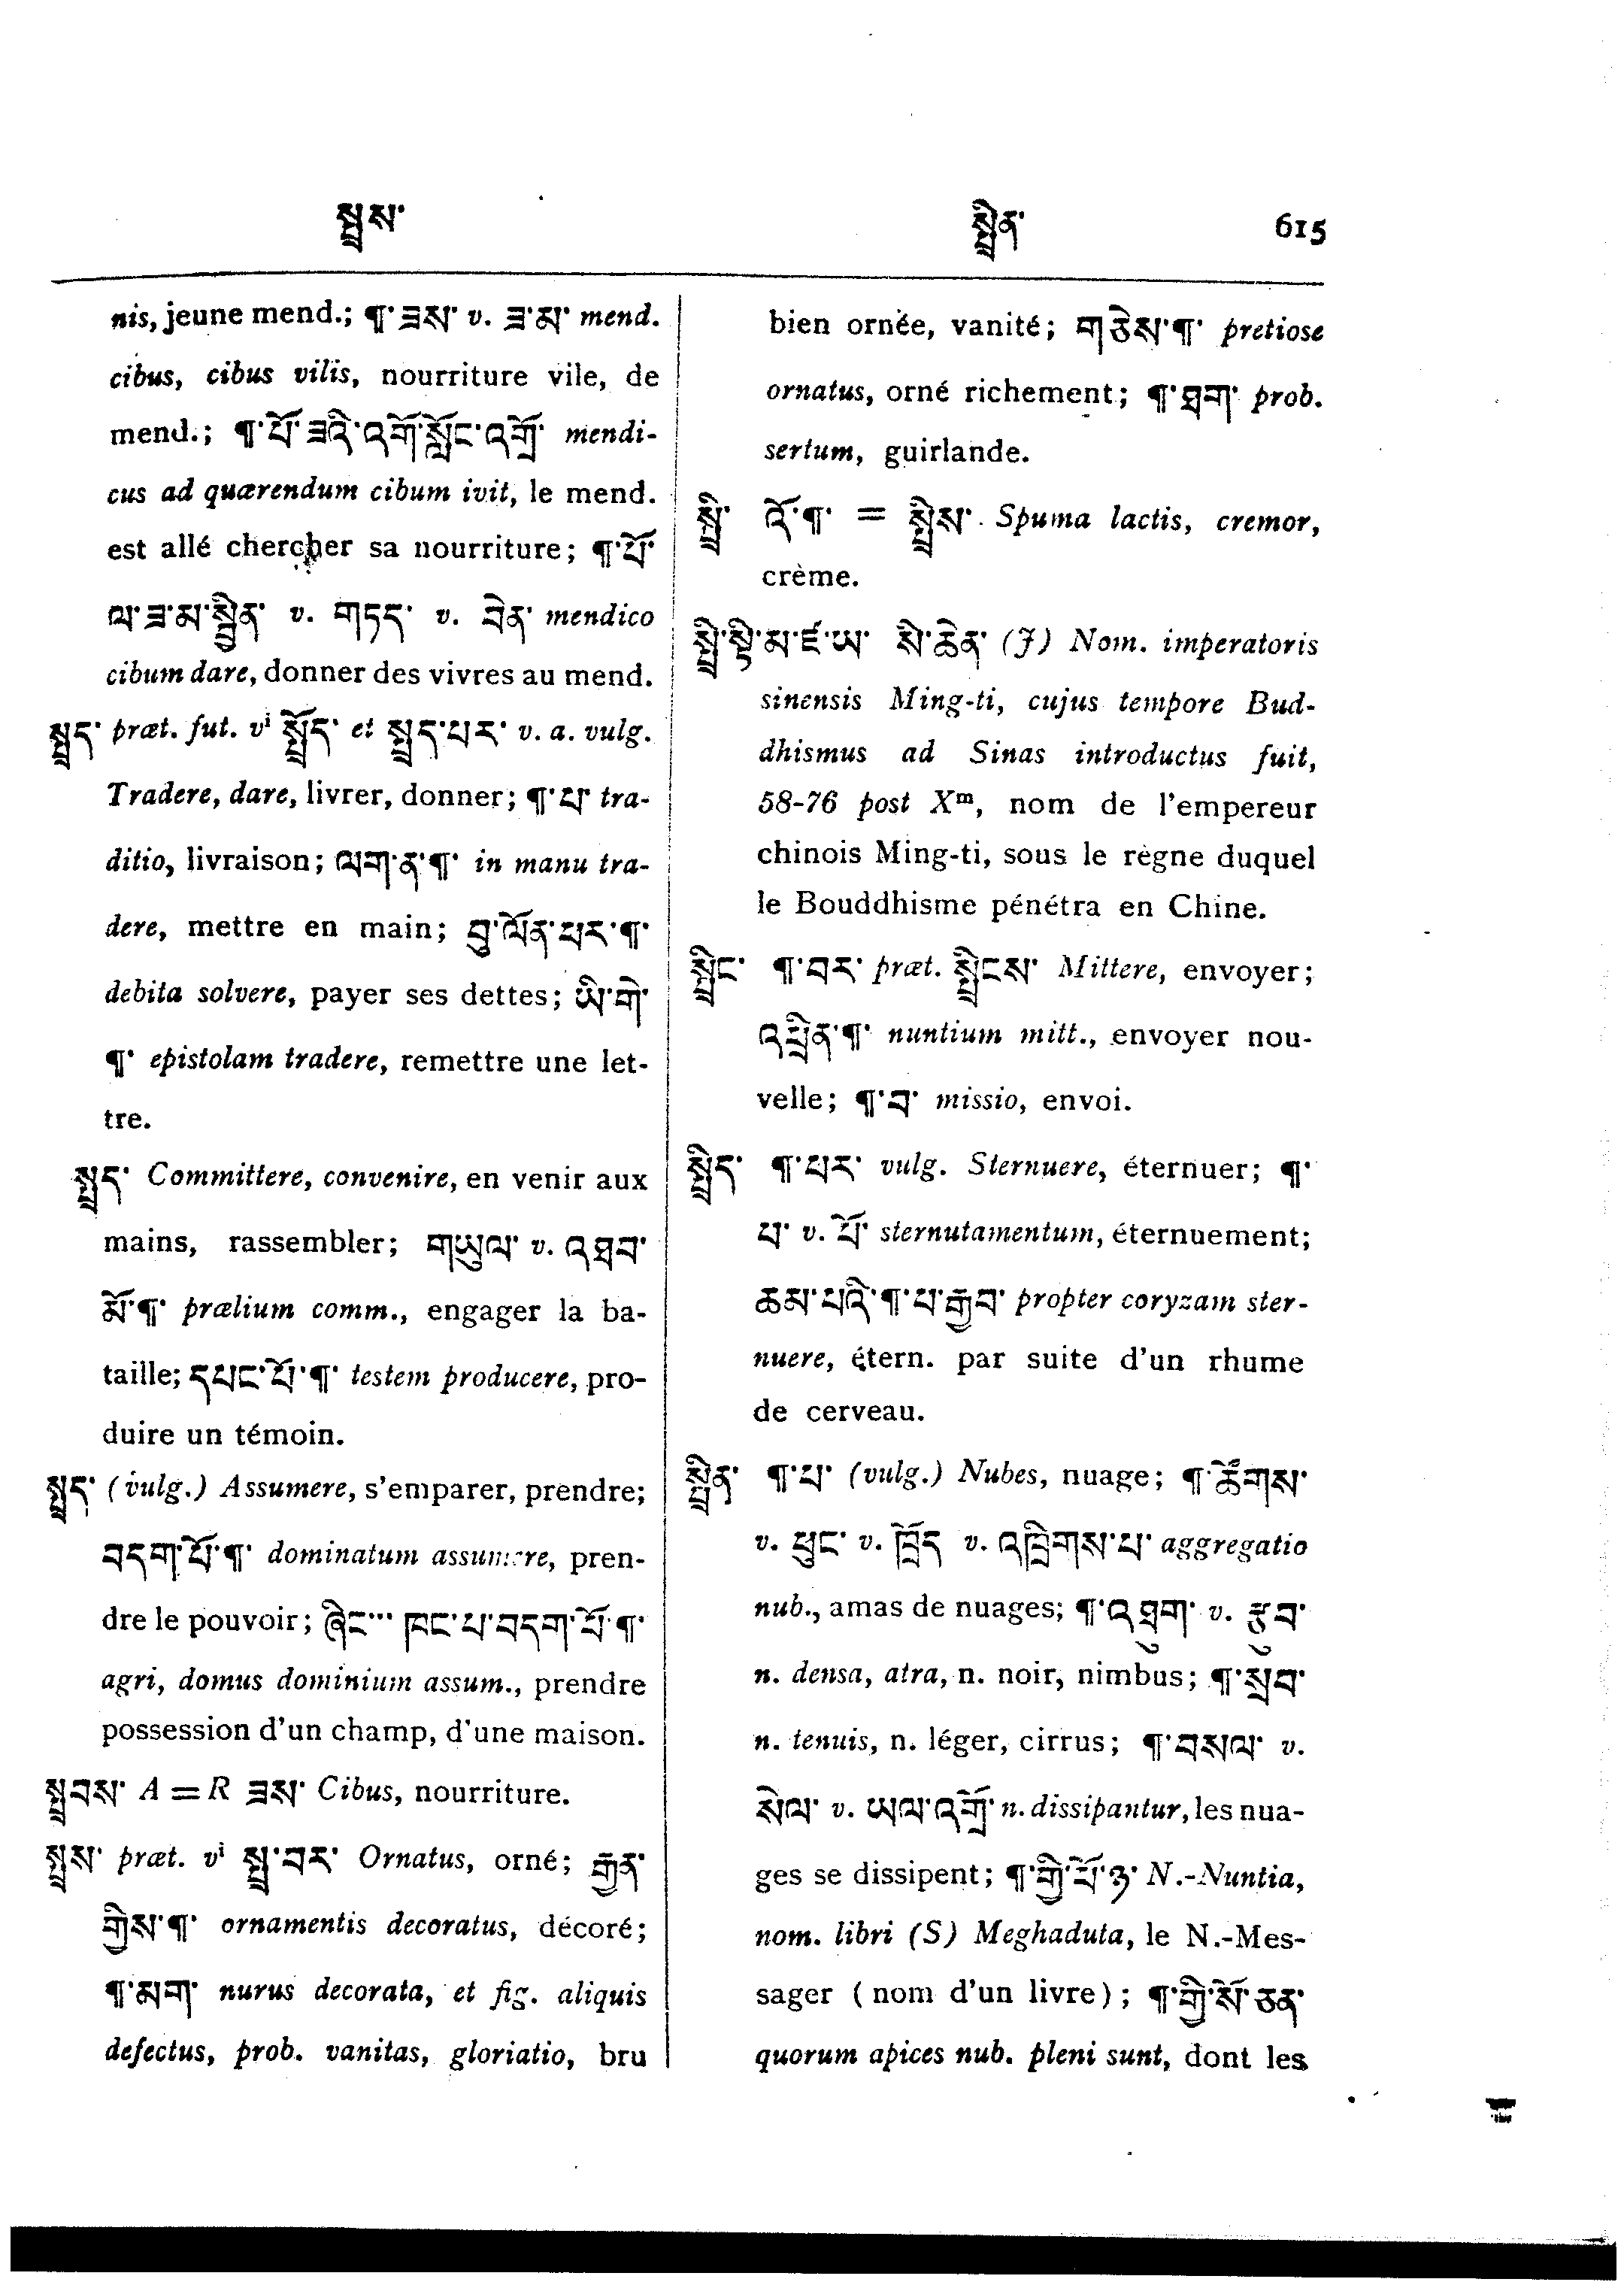 སྤྲས་ སྤྲིན་ 615
nis, jeune mend.; ¶་ཟས་ v. ཟ་མ་ mend.
cibus, cibus vilis, nourriture vile, de
mend.; ¶་པོ་ཟའི་འགོ་སློང་འགྲོ་ mendi-
cus ad quærendum cibum ivit, le mend.
est allé chercher sa nourriture; ¶་པོ་
ལ་ཟ་མ་སྦྱིན་ v. གཏད་ v. བེན་ mendico
cibum dare, donner des vivres au mend.
སྤྲད་ præt. fut. vⁱ སྤྲོད་ et སྤྲད་པར་ v. a. vulg.
Tradere, dare, livrer, donner; ¶་པ་ tra-
ditio, livraison; ལག་ན་¶་ in manu tra-
dere, mettre en main; བུ་ལོན་པར་¶་
debita solvere, payer ses dettes; ཡི་གེ་
¶་ epistolam tradere, remettre une let-
tre.
སྤྲད་ Committere, convenire, en venir aux
mains, rassembler; གཡུལ་ v. འཐབ་
མོ་¶་ prælium comm., engager la ba-
taille; དཔང་པོ་¶་ testem producere, pro-
duire un témoin.
སྤྲད་ (vulg.) Assumere, s'emparer, prendre;
བདག་པོ་¶་ dominatum assumere, pren-
dre le pouvoir; ཞིང་... ཁང་པ་བདག་པོ་¶་
agri, domus dominium assum., prendre
possession d'un champ, d'une maison.
སྤྲབས་ A = R ཟས་ Cibus, nourriture.
སྤྲས་ præt. vⁱ སྤྲ་བར་ Ornatus, orné; རྒྱན་
གྱིས་¶་ ornamentis decoratus, décoré;
¶་མག་ nurus decorata, et fig. aliquis
defectus, prob. vanitas, gloriatio, bru
bien ornée, vanité; གཅེས་¶་ pretiose
ornatus, orné richement; ¶་ཐག་ prob.
sertum, guirlande.
སྤྲི་ འོ་¶་ = སྤྲིས་ Spuma lactis, cremor,
crème.
སྤྲི་སྟི་མ་ཛ་ཡ་ སེ་ཆེན་ (J) Nom. imperatoris
sinensis Ming-ti, cujus tempore Bud-
dhismus ad Sinas introductus fuit,
58-76 post Xᵐ, nom de l'empereur
chinois Ming-ti, sous le règne duquel
le Bouddhisme pénétra en Chine.
སྤྲིང་ ¶་བར་ præt. སྤྲིངས་ Mittere, envoyer;
འཕྲིན་¶་ nuntium mitt., envoyer nou-
velle; ¶་བ་ missio, envoi.
སྤྲིད་ ¶་པར་ vulg. Sternuere, éternuer; ¶་
པ་ v. པོ་ sternutamentum, éternuement;
ཆམ་པའི་¶་པ་རྒྱབ་ propter coryzam ster-
nuere, étern. par suite d'un rhume
de cerveau.
སྤྲིན་ ¶་པ་ (vulg.) Nubes, nuage; ¶་ཚོགས་
v. ཕུང་ v. ཁྲོད v. འཁྲིགས་པ་ aggregatio
nub., amas de nuages; ¶་འཐུག་ v. རྩུབ་
n. densa, atra, n. noir, nimbus; ¶་སྲབ་
n. tenuis, n. léger, cirrus; ¶་བསལ་ v.
སེལ་ v. ཡལ་འགྲོ་ n. dissipantur, les nua-
ges se dissipent; ¶་གྱི་ཕོ་ཉ་ N.-Nuntia,
nom. libri (S) Meghaduta, le N.-Mes-
sager (nom d'un livre); ¶་གྱི་སོ་ཅན་
quorum apices nub. pleni sunt, dont les